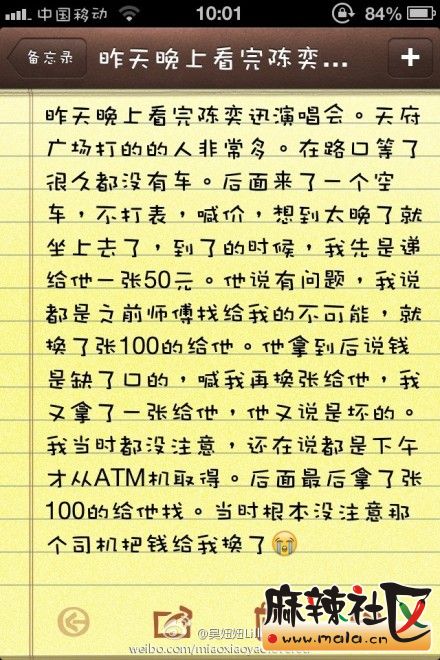 中国移动 10:01 84%
备忘录 昨天晚上看完陈奕... +
昨天晚上看完陈奕迅演唱会。天府
广场打的的人非常多。在路口等了
很久都没有车。后面来了一个空
车，不打表，喊价，想到太晚了就
坐上去了，到了的时候，我先是递
给他一张50元。他说有问题，我说
都是之前师傅找给我的不可能，就
换了张100的给他。他拿到后说钱
是缺了口的，喊我再换张给他，我
又拿了一张给他，他又说是坏的。
我当时都没注意，还在说都是下午
才从ATM机取得。后面最后拿了张
100的给他找。当时根本没注意那
个司机把钱给我换了😭
麻辣社区
www.mala.cn